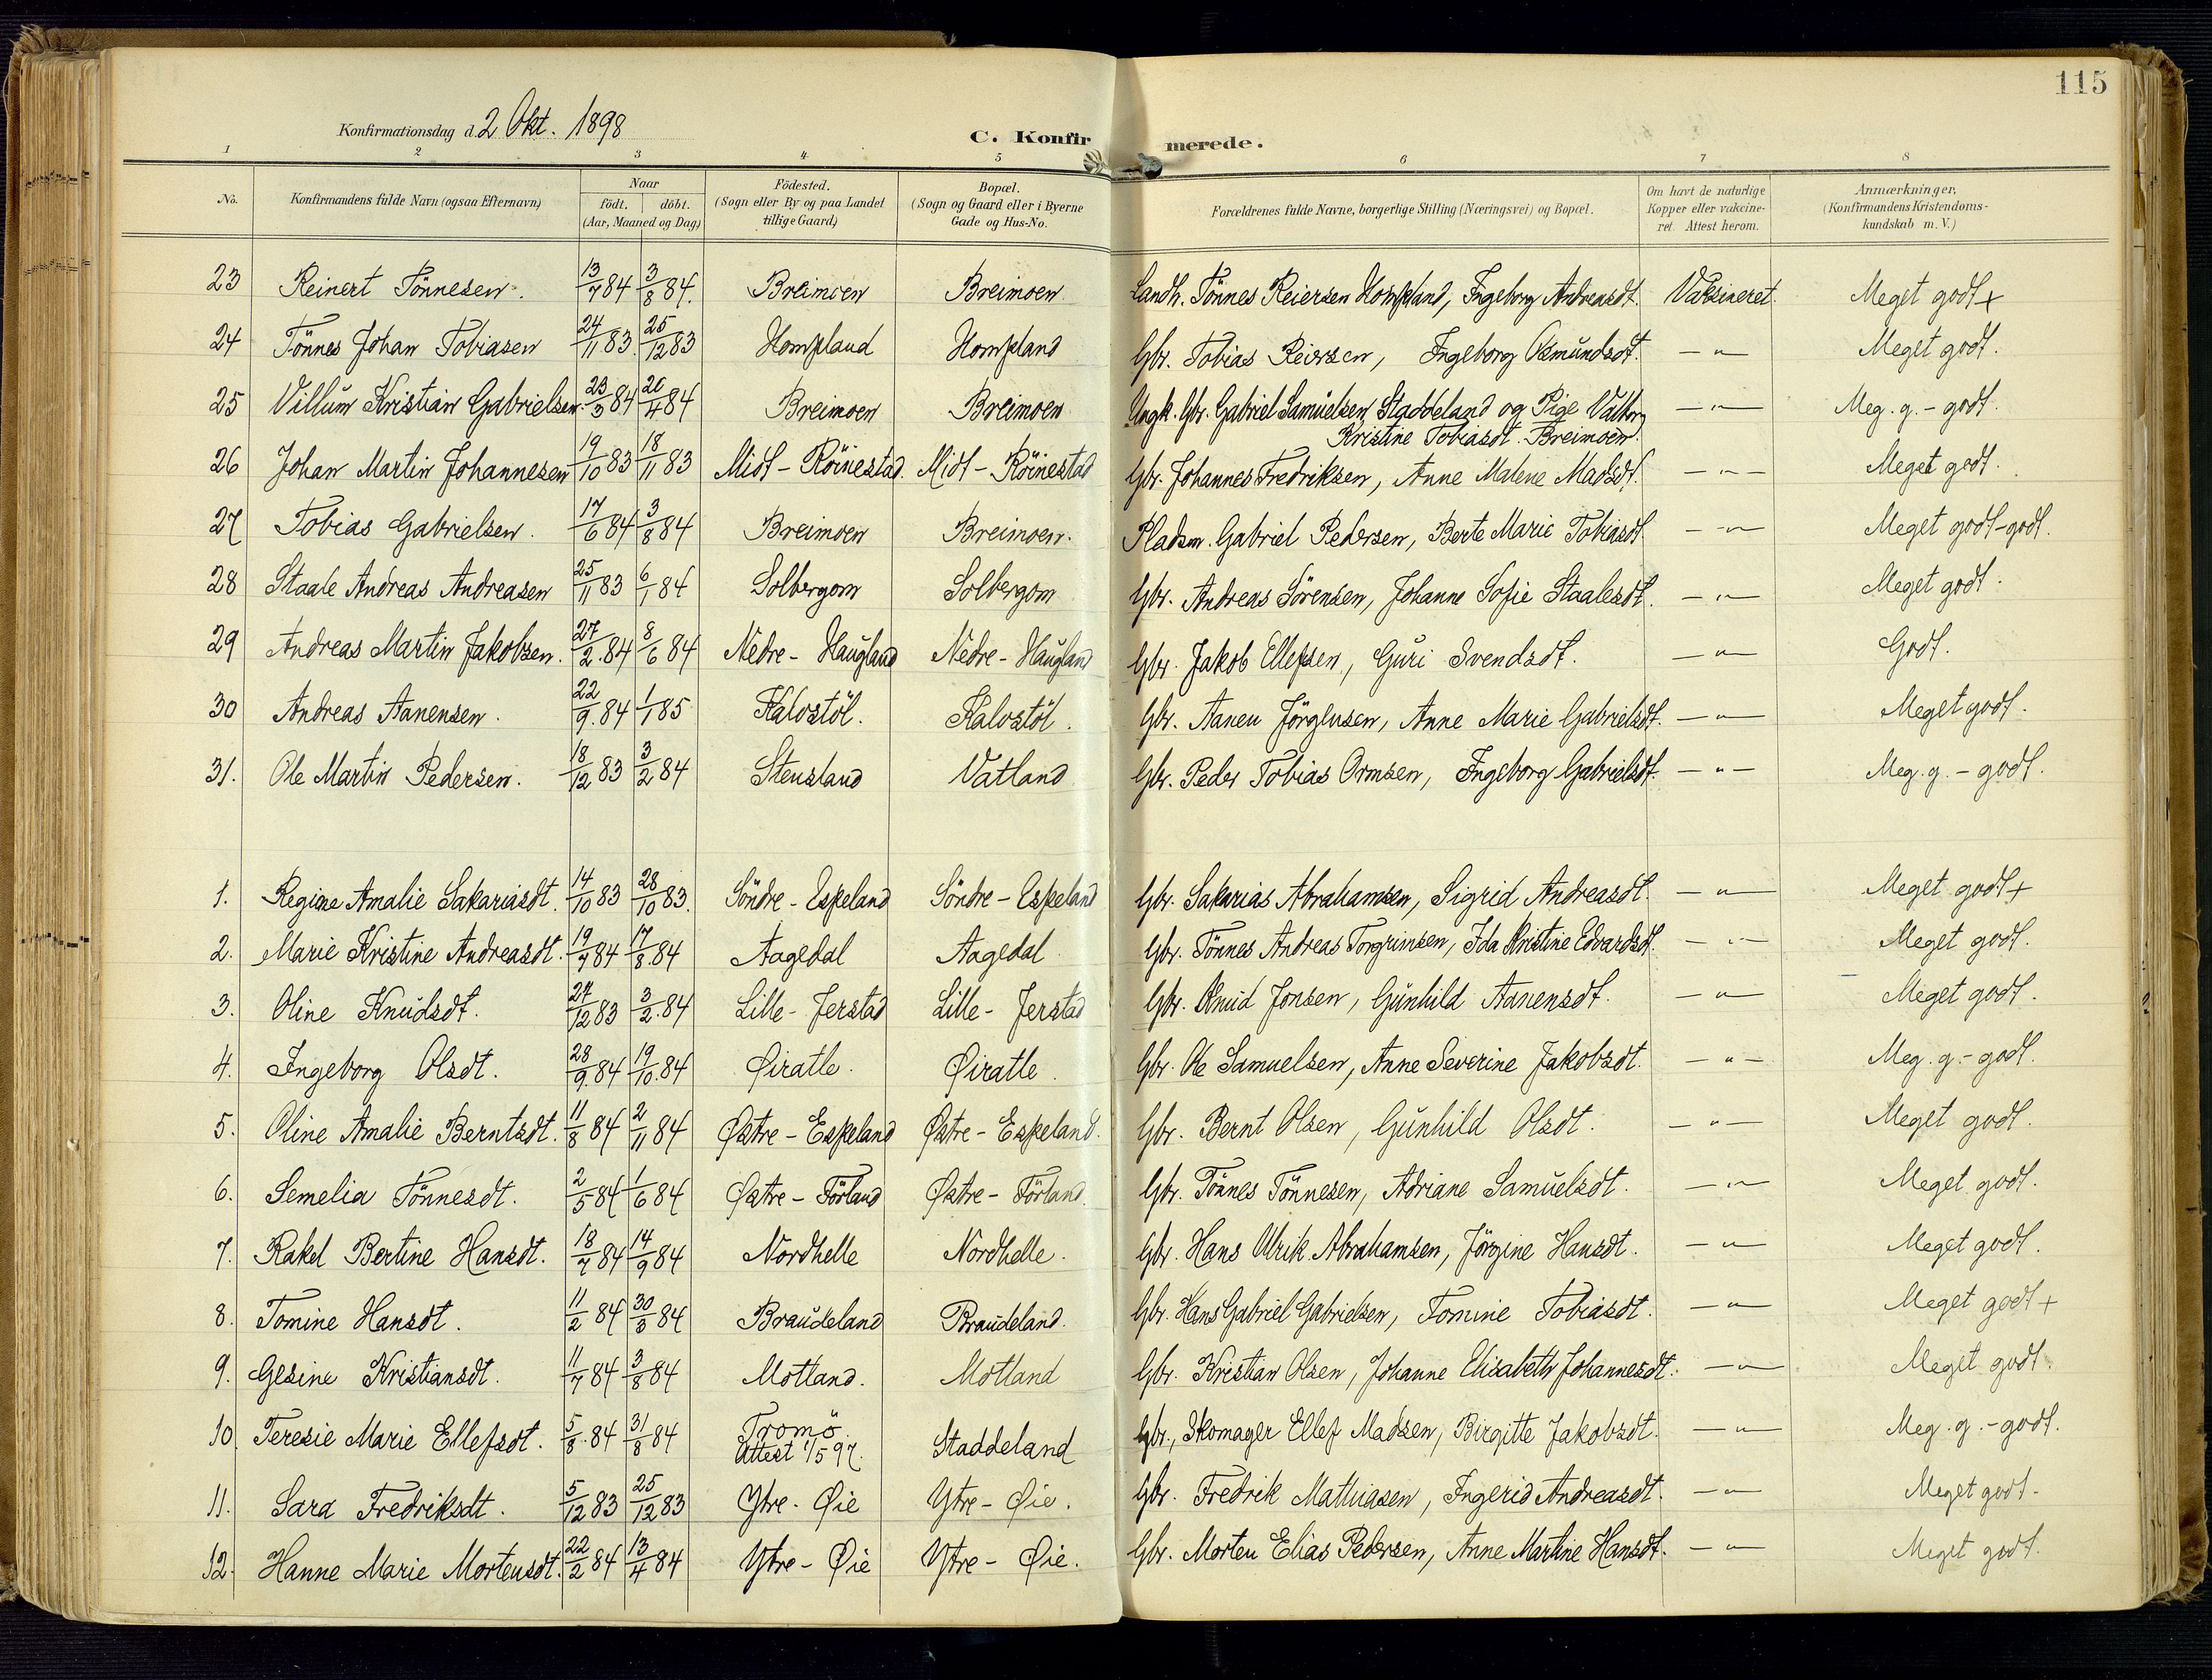 115
Konfirmationsdag d. 2 Okt. 1898
C. Konfirmerede.
1 2 3 4 5 6 7 8
No. Konfirmandens fulde Navn (ogsaa Efternavn) Naar födt. döbt. (Aar, Maaned og Dag) Födested. (Sogn eller By og paa Landet tillige Gaard) Bopæl. (Sogn og Gaard eller i Byerne Gade og Hus-No. Forældrenes fulde Navne, borgerlige Stilling (Næringsvei) og Bopæl. Om havt de naturlige Kopper eller vakcineret. Attest herom. Anmærkninger, (Konfirmandens Kristendomskundskab m. V.)
23 Reinert Tönnesen. 13/7 84 3/8 84. Breimoen Breimoen Landh. Tönnes Reiersen Hompland, Ingeborg Andreasdt. Vaksineret. Meget godt +
24 Tönnes Johan Tobiasen 24/11 83. 25/12 83 Hompland Hompland Gbr. Tobias Reiersen, Ingeborg Osmundsdt. — " — Meget godt.
25 Villum Kristian Gabrielsen. 23/3 84 20/4 84 Breimoen Breimoen Ungk. Gbr. Gabriel Samuelsen Staddeland og Pige Valborg Kristine Tobiasdt. Breimoen. — " — Meg. g. - godt.
26 Johan Martin Johannesen 19/10 83 18/11 83 Midt - Röinestad. Midt - Röinestad Gbr. Johannes Fredriksen, Anne Malene Madsdt. — " — Meget godt.
27 Tobias Gabrielsen. 17/6 84 3/8 84 Breimoen Breimoen. Pladsm. Gabriel Pedersen, Berte Marie Tobiasdt. — " — Meget godt-godt.
28 Staale Andreas Andreasen 25/11 83 6/1 84 Solbergom Solbergom Gbr. Andreas Sörensen, Johanne Sofie Staalesdt. — " — Meget godt.
29 Andreas Martin Jakobsen. 27/2. 84 8/6 84 Nedre - Haugland Nedre - Haugland Gbr. Jakob Ellefsen, Guri Svendsdt. — " — Godt.
30 Andreas Aanensen. 22/9. 84 1/1 85 Kalvstöl. Kalvstöl. Gbr. Aanen Jörgensen, Anne Marie Gabrielsdt. — " — Meget godt.
31. Ole Martin Pedersen. 18/12 83 3/2 84 Stensland Vatland Gbr. Peder Tobias Ormsen, Ingeborg Gabrielsdt. — " — Meg. g. - godt.
1. Regine Amalie Sakariasdt. 14/10 83 28/10 83. Söndre - Espeland Söndre - Espeland Gbr. Sakarias Abrahamsen, Sigrid Andreasdt. — " — Meget godt +
2. Marie Kristine Andreasdt. 19/7 84 17/8. 84 Aagedal Aagedal Gbr. Tönnes Andreas Torgrimsen, Ida Kristine Edvardsdt. — " — Meget godt.
3. Oline Knudsdt. 27/12 83 3/2. 84 Lille - Jerstad Lille - Jerstad Gbr. Knud Jonsen, Gunhild Aanensdt. — " — Meget godt.
4. Ingeborg Olsdt. 28/9. 84 19/10. 84 Øiratle. Øiratle. Gbr. Ole Samuelsen, Anne Severine Jakobsdt. — " — Meg. g. - godt.
5. Oline Amalie Berntsdt. 11/8 84 2/11 84 Østre - Espeland Østre - Espeland. Gbr. Bernt Olsen, Gunhild Olsdt. — " — Meget godt.
6. Semelia Tönnesdt. 2/5 84 1/6 84 Østre - Förland Østre - Förland. Gbr. Tönnes Tönnesen, Adriane Samuelsdt. — " — Meget godt.
7. Rakel Bertine Hansdt. 18/7 84 14/9 84 Nordhelle Nordhelle. Gbr. Hans Ulrik Abrahamsen, Jörgine Hansdt. — " — Meget godt.
8. Tomine Hansdt. 11/2 84 30/3 84 Braudeland Braudeland. Gbr. Hans Gabriel Gabrielsen, Tomine Tobiasdt. — " — Meget godt +
9. Gesine Kristiansdt. 11/7 84 3/8 84 Motland. Motland Gbr. Kristian Olsen, Johanne Elisabeth Johannesdt. — " — Meget godt.
10. Teresie Marie Ellefsdt. 5/8. 84 31/8 84 Tromö Attest 1/5 97. Staddeland Gbr., Skomager Ellef Madsen, Birgitte Jakobsdt. — " — Meg. g. - godt.
11. Sara Fredriksdt. 5/12 83 25/12 83 Ytre - Øie Ytre - Øie. Gbr. Fredrik Mathiasen, Ingerid Andreasdt. — " — Meget godt.
12. Hanne Marie Mortensdt. 22/2 84 13/4 84 Ytre - Øie Ytre - Øie. Gbr. Morten Elias Pedersen, Anne Martine Hansdt. — " — Meget godt.